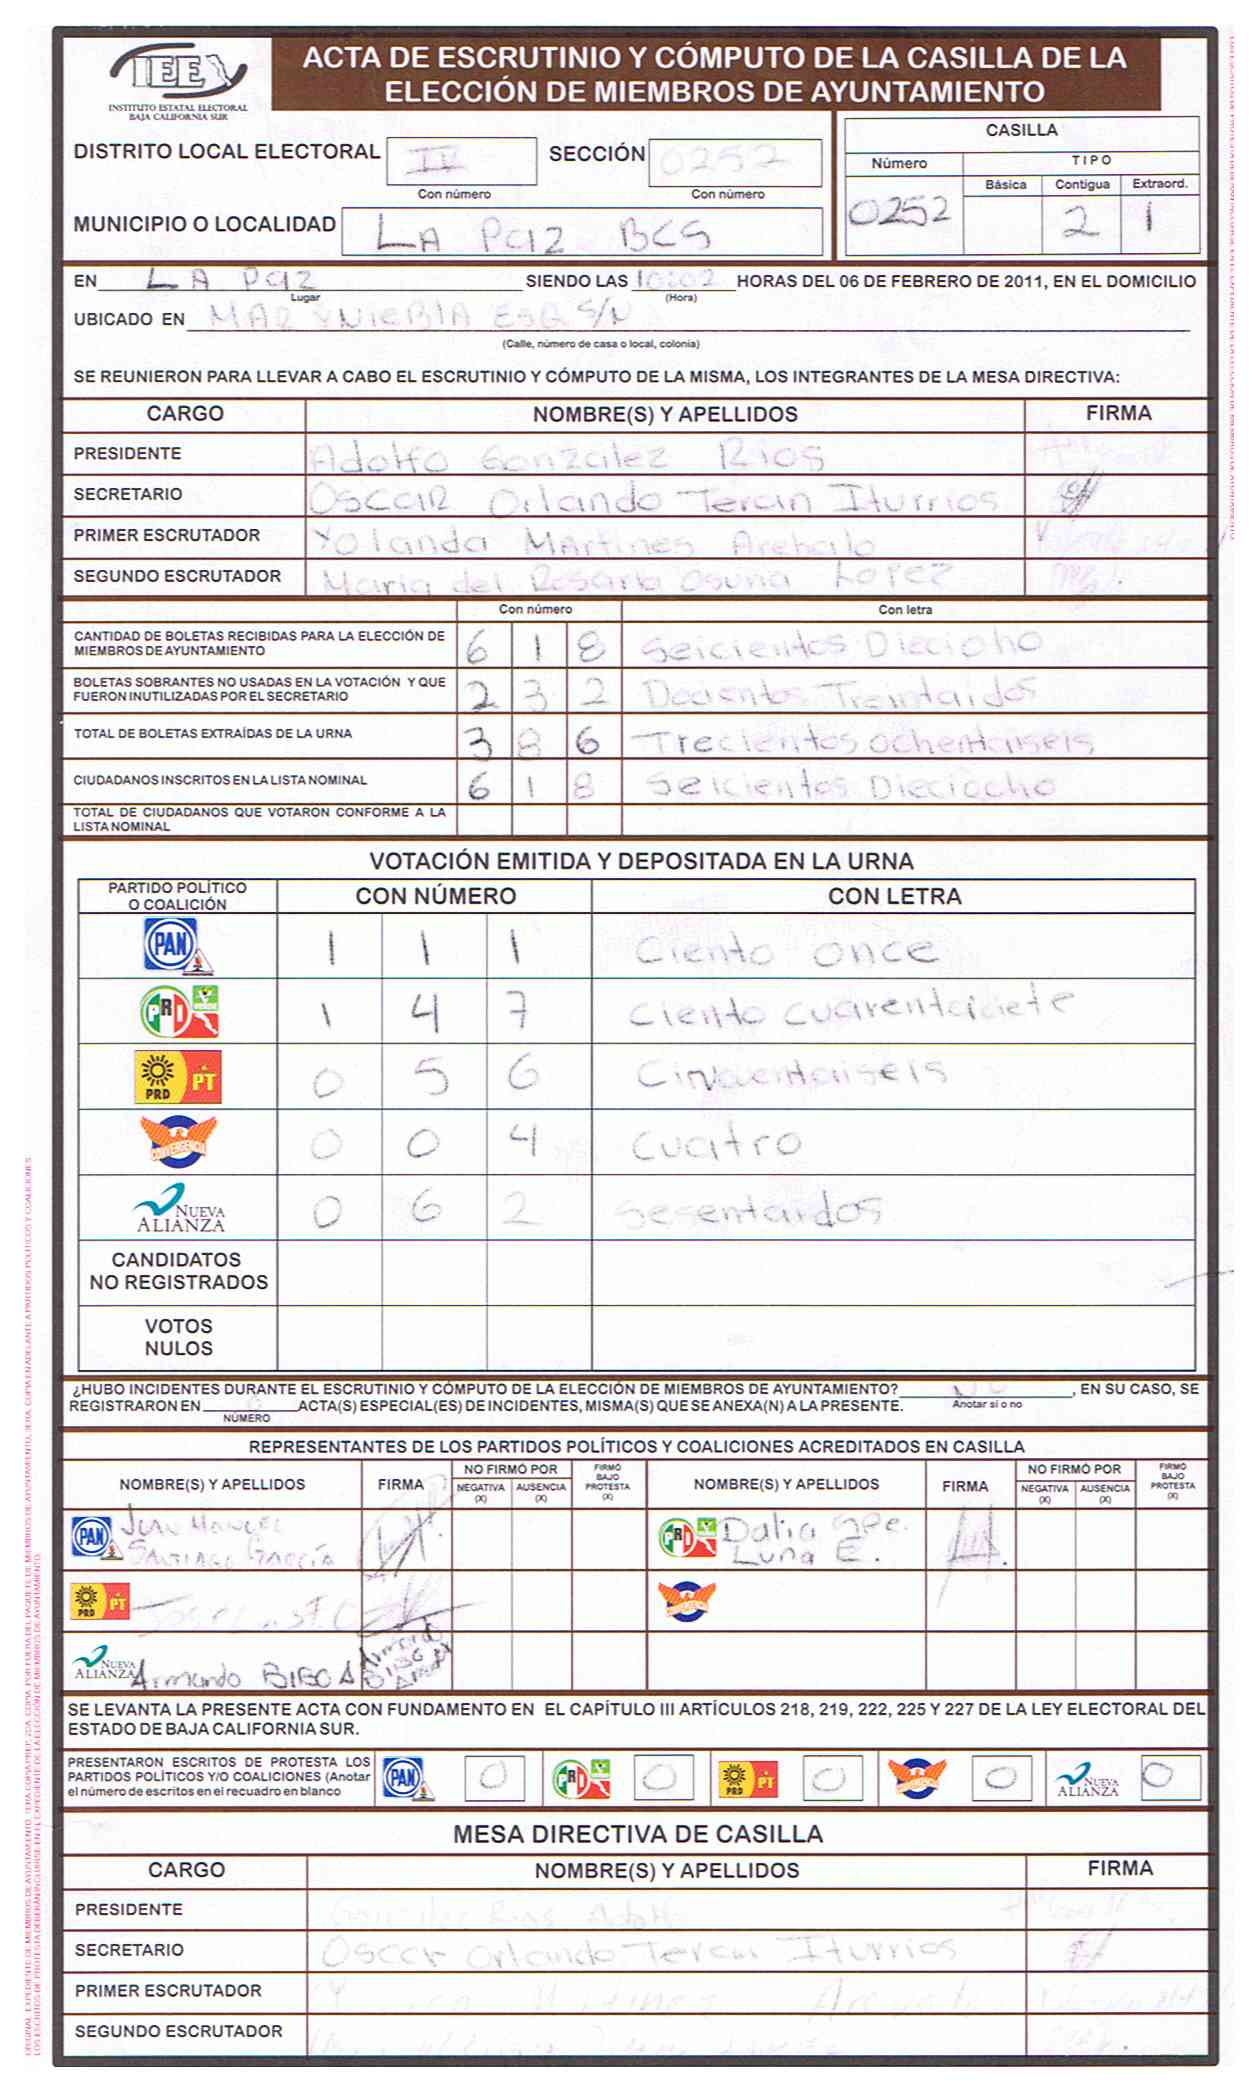 IEE
INSTITUTO ESTATAL ELECTORAL
BAJA CALIFORNIA SUR
ACTA DE ESCRUTINIO Y CÓMPUTO DE LA CASILLA DE LA
ELECCIÓN DE MIEMBROS DE AYUNTAMIENTO
DISTRITO LOCAL ELECTORAL
Con número
SECCIÓN 0252
Con número
MUNICIPIO O LOCALIDAD LA Paz BCS
CASILLA
Número TIPO
Básica Contigua Extraord.
0252 2 1
EN LA Paz SIENDO LAS 10:02 HORAS DEL 06 DE FEBRERO DE 2011, EN EL DOMICILIO
Lugar (Hora)
UBICADO EN MAR S/N
(Calle, número de casa o local, colonia)
SE REUNIERON PARA LLEVAR A CABO EL ESCRUTINIO Y CÓMPUTO DE LA MISMA, LOS INTEGRANTES DE LA MESA DIRECTIVA:
CARGO NOMBRE(S) Y APELLIDOS FIRMA
PRESIDENTE Adolfo Gonzalez Rios
SECRETARIO OSCAR Orlando Teran Iturrios
PRIMER ESCRUTADOR Yolanda Martines Arebalo
SEGUNDO ESCRUTADOR Maria del Rosario Osuna Lopez
Con número Con letra
CANTIDAD DE BOLETAS RECIBIDAS PARA LA ELECCIÓN DE
MIEMBROS DE AYUNTAMIENTO 6 1 8 Seicientos Diecioho
BOLETAS SOBRANTES NO USADAS EN LA VOTACIÓN Y QUE
FUERON INUTILIZADAS POR EL SECRETARIO 2 3 2 Docientos Treintaidos
TOTAL DE BOLETAS EXTRAÍDAS DE LA URNA 3 8 6 Trecientos ochentaiseis
CIUDADANOS INSCRITOS EN LA LISTA NOMINAL 6 1 8 Seicientos Dieciocho
TOTAL DE CIUDADANOS QUE VOTARON CONFORME A LA
LISTA NOMINAL
VOTACIÓN EMITIDA Y DEPOSITADA EN LA URNA
PARTIDO POLÍTICO
O COALICIÓN CON NÚMERO CON LETRA
PAN 1 1 1 Ciento once
PRI VERDE 1 4 7 Ciento cuarentaiciete
PRD PT 0 5 6 Cincuentaiseis
CONVERGENCIA 0 0 4 Cuatro
NUEVA
ALIANZA 0 6 2 Sesentaidos
CANDIDATOS
NO REGISTRADOS
VOTOS
NULOS
¿HUBO INCIDENTES DURANTE EL ESCRUTINIO Y CÓMPUTO DE LA ELECCIÓN DE MIEMBROS DE AYUNTAMIENTO? NO, EN SU CASO, SE
Anotar si o no
REGISTRARON EN 0 ACTA(S) ESPECIAL(ES) DE INCIDENTES, MISMA(S) QUE SE ANEXA(N) A LA PRESENTE.
NÚMERO
REPRESENTANTES DE LOS PARTIDOS POLÍTICOS Y COALICIONES ACREDITADOS EN CASILLA
NOMBRE(S) Y APELLIDOS FIRMA NO FIRMÓ POR NEGATIVA (X) AUSENCIA (X) FIRMÓ BAJO PROTESTA (X)
NOMBRE(S) Y APELLIDOS FIRMA NO FIRMÓ POR NEGATIVA (X) AUSENCIA (X) FIRMÓ BAJO PROTESTA (X)
PAN Juan Manuel
Santiago García
PRI Dalia Gpe.
Luna E.
PRD PT
CONVERGENCIA
NUEVA
ALIANZA Armando
SE LEVANTA LA PRESENTE ACTA CON FUNDAMENTO EN EL CAPÍTULO III ARTÍCULOS 218, 219, 222, 225 Y 227 DE LA LEY ELECTORAL DEL
ESTADO DE BAJA CALIFORNIA SUR.
PRESENTARON ESCRITOS DE PROTESTA LOS
PARTIDOS POLÍTICOS Y/O COALICIONES (Anotar
el número de escritos en el recuadro en blanco
PAN 0 PRI 0 PRD PT 0 CONVERGENCIA 0 NUEVA ALIANZA 0
MESA DIRECTIVA DE CASILLA
CARGO NOMBRE(S) Y APELLIDOS FIRMA
PRESIDENTE Gonzalez Rios Adolfo
SECRETARIO Oscar Orlando Teran Iturrios
PRIMER ESCRUTADOR Martines
SEGUNDO ESCRUTADOR